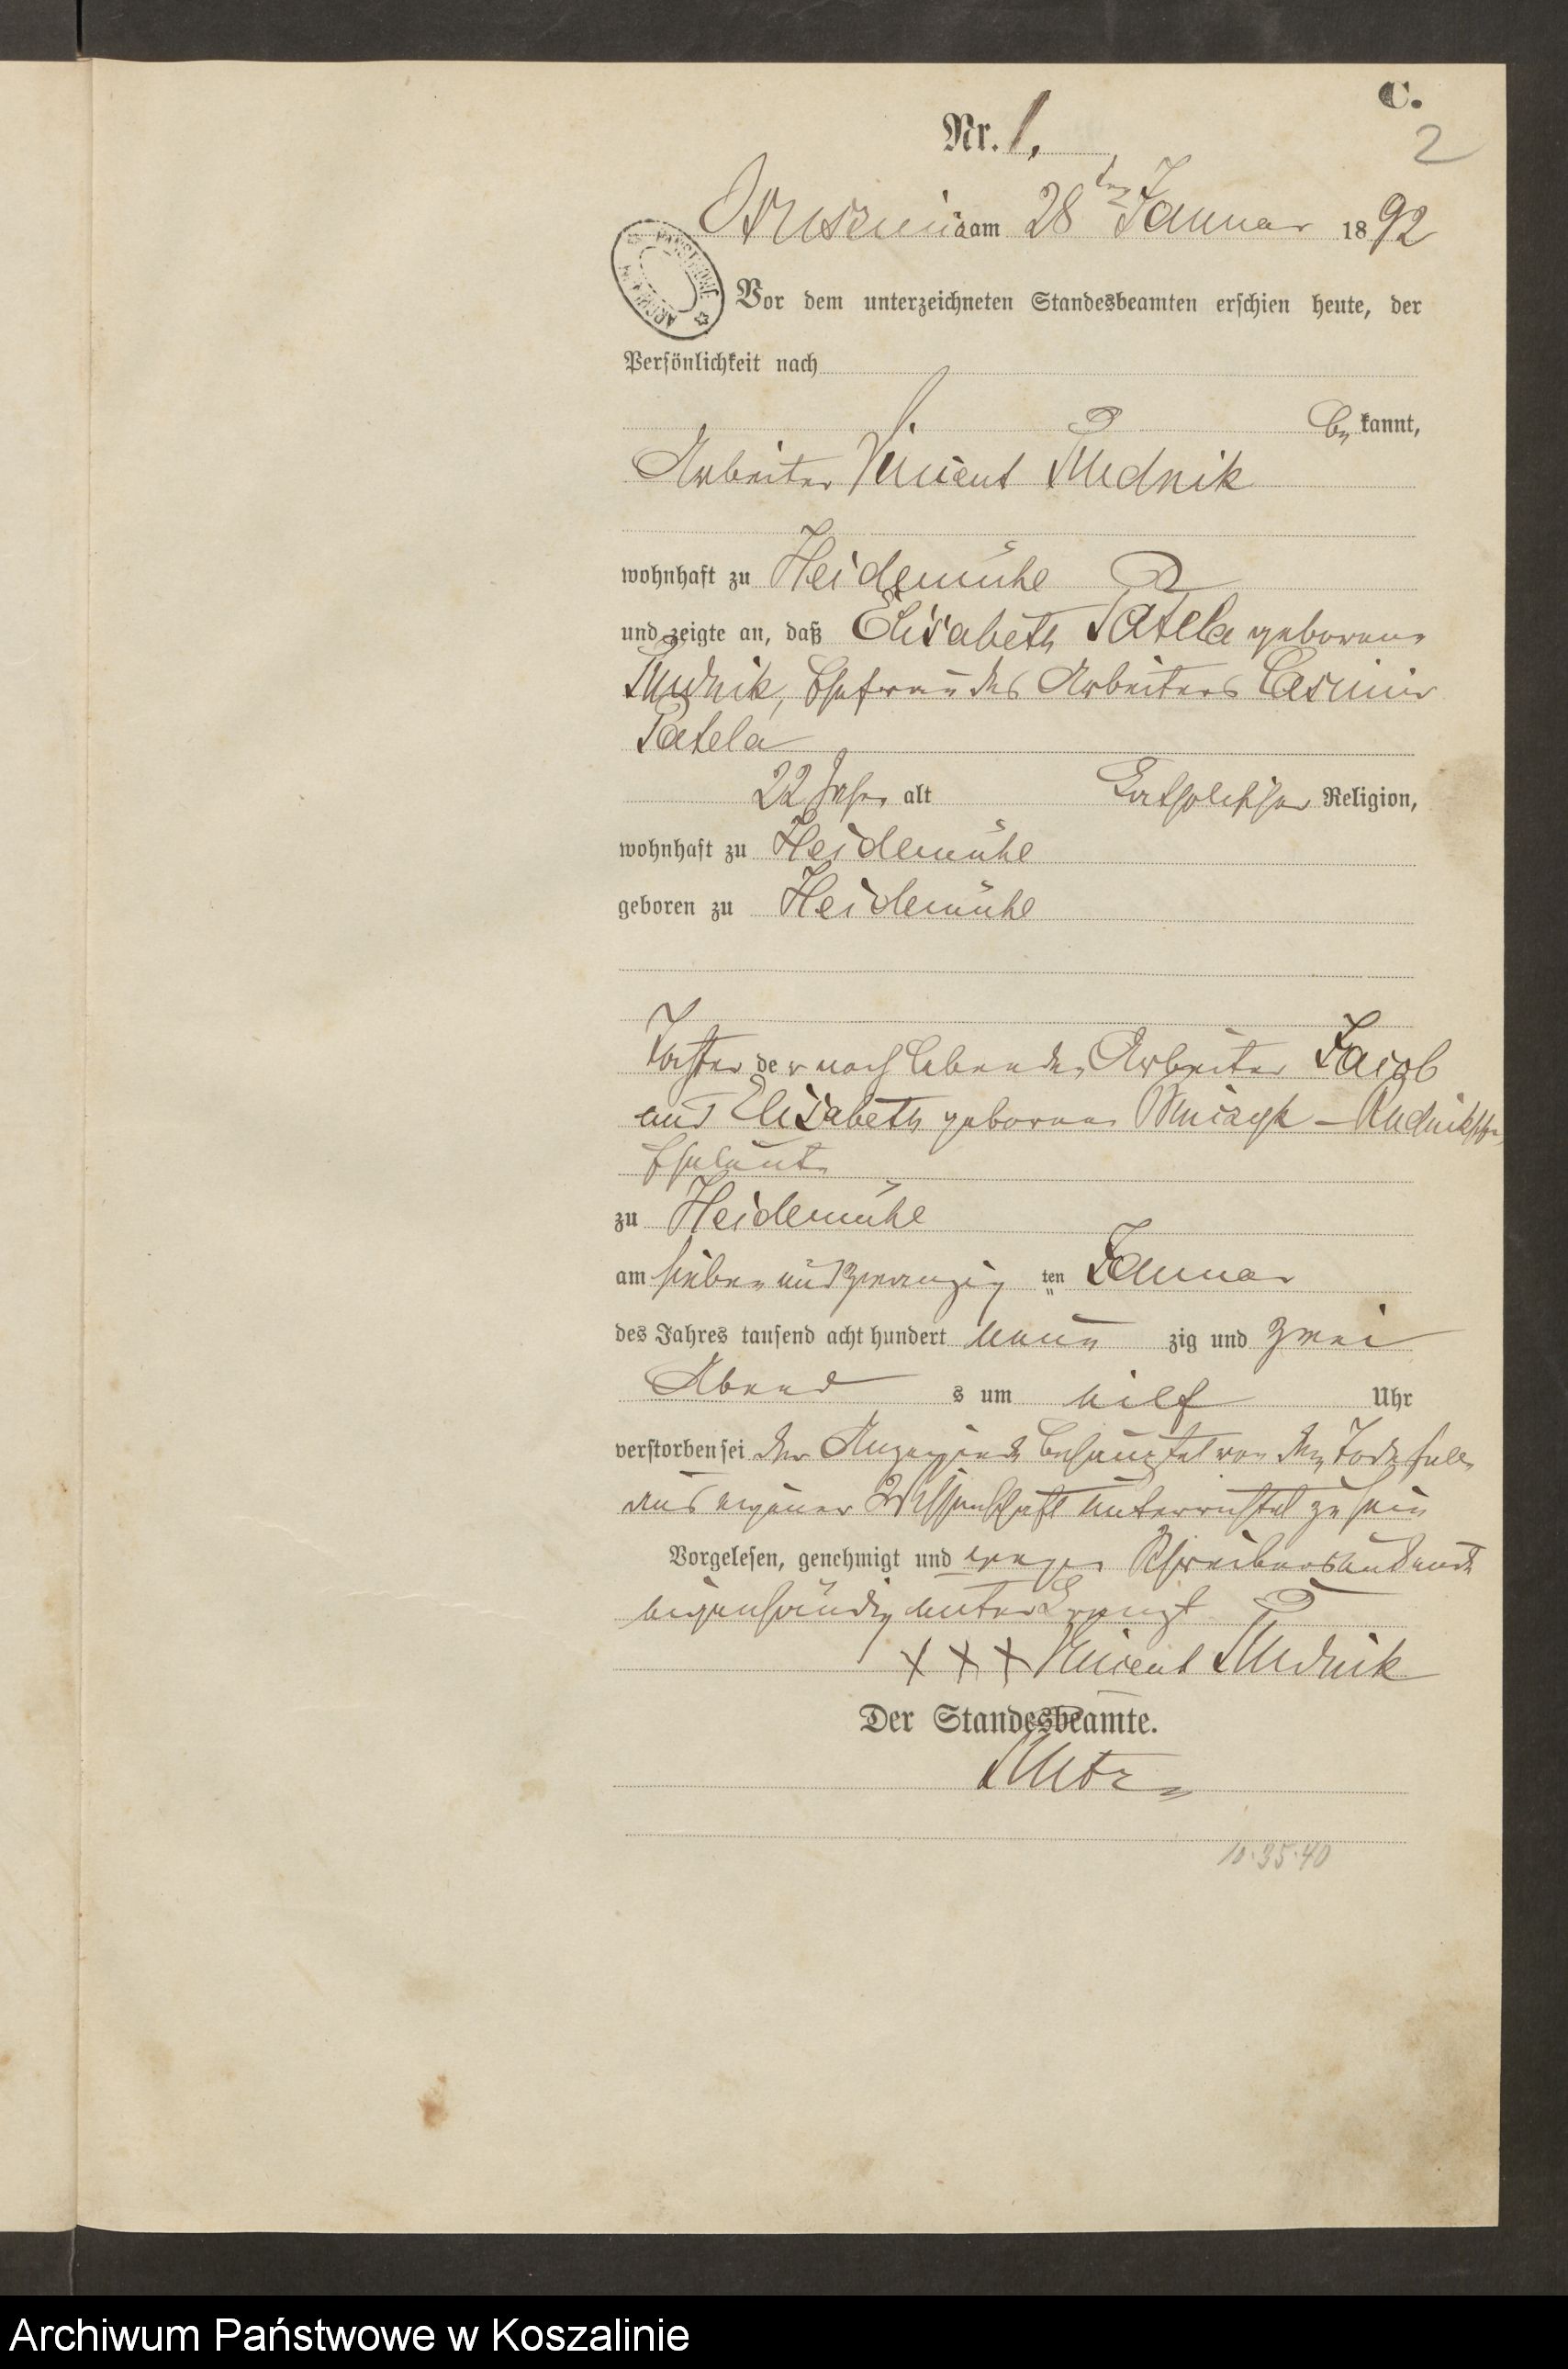 C.
2
Nr. 1.
am 28ten Januar 1892
Vor dem unterzeichneten Standesbeamten erschien heute, der
Persönlichkeit nach
be kannt,
Arbeiter Vincent Rudnik
wohnhaft zu Heidemühl
und zeigte an, daß Elisabeth Patela geborene
Rudnik, Ehefrau des Arbeiters Casimir
Patela
22 Jahr alt Katholischer Religion,
wohnhaft zu Heidemühl
geboren zu Heidemühl
Tochter der noch lebenden Arbeiter Jacob
und Elisabeth geborene Rudnikschen
Eheleute
zu Heidemühl
am sieben und zwanzig ten Januar
des Jahres tausend acht hundert neun zig und zwei
Abend s um eilf Uhr
verstorben sei der Anzeigende behauptet von dem Todesfalle
aus eigener Wissenschaft unterrichtet zu sein
Vorgelesen, genehmigt und wegen
eigenhändig unterkreuzt
+ + + Vincent Rudnik
Der Standesbeamte.
10.35.40
Archiwum Państwowe w Koszalinie